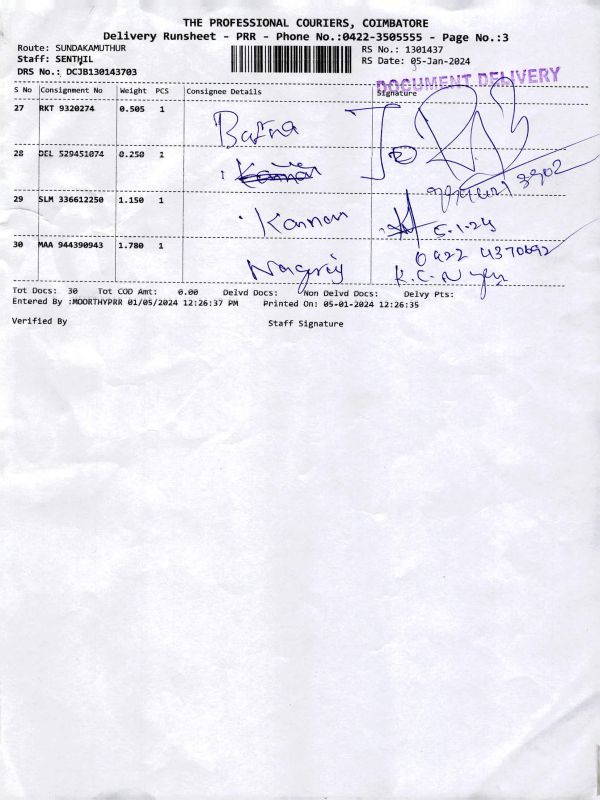 THE PROFESSIONAL COURIERS, COIMBATORE
Delivery Runsheet - PRR - Phone No.:0422-3505555 - Page No.:3
Route: SUNDAKAMUTHUR RS No.: 1301437
Staff: SENTHIL RS Date: 05-Jan-2024
DRS No.: DCJB130143703
DOCUMENT DELIVERY
S No Consignment No Weight PCS Consignee Details Signature
27 RKT 9320274 0.505 1 Bafna
28 DEL 529451074 0.250 1
3902
29 SLM 336612250 1.150 1 Kannan 5-1-24
30 MAA 944390943 1.780 1 0422 4370692
Nagaraj K.C.
Tot Docs: 30 Tot COD Amt: 0.00 Delvd Docs: Non Delvd Docs: Delvy Pts:
Entered By :MOORTHYPRR 01/05/2024 12:26:37 PM Printed On: 05-01-2024 12:26:35
Verified By Staff Signature